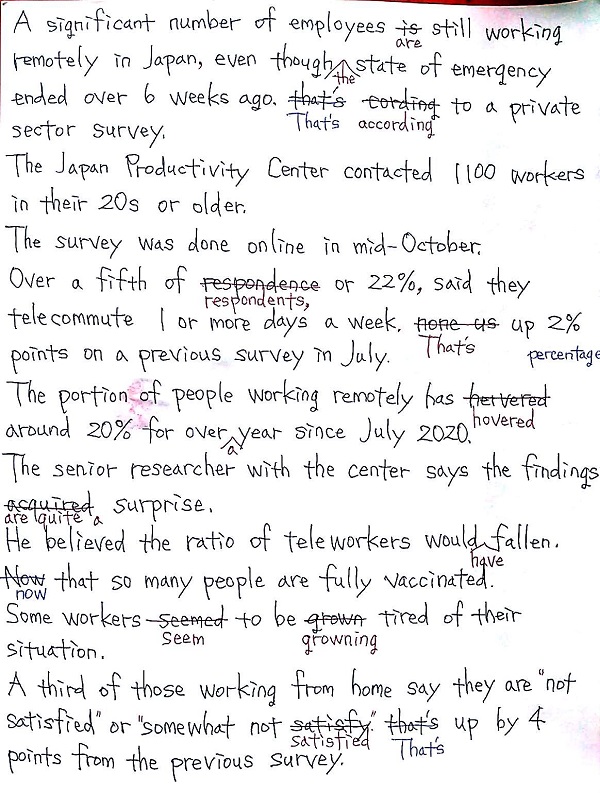 A significant number of employees is still working
are
remotely in Japan, even though state of emergency
the
ended over 6 weeks ago. that's cording to a private
That's according
sector survey.
The Japan Productivity Center contacted 1100 workers
in their 20s or older.
The survey was done online in mid-October.
Over a fifth of respondence or 22%, said they
respondents,
telecommute 1 or more days a week. none us up 2%
That's percentage
points on a previous survey in July.
The portion of people working remotely has hervered
hovered
around 20% for over year since July 2020.
a
The senior researcher with the center says the findings
acquired surprise.
are quite a
He believed the ratio of teleworkers would fallen.
have
Now that so many people are fully vaccinated.
now
Some workers seemed to be grown tired of their
seem growning
situation.
A third of those working from home say they are "not
satisfied" or "somewhat not satisfy." that's up by 4
satisfied That's
points from the previous survey.